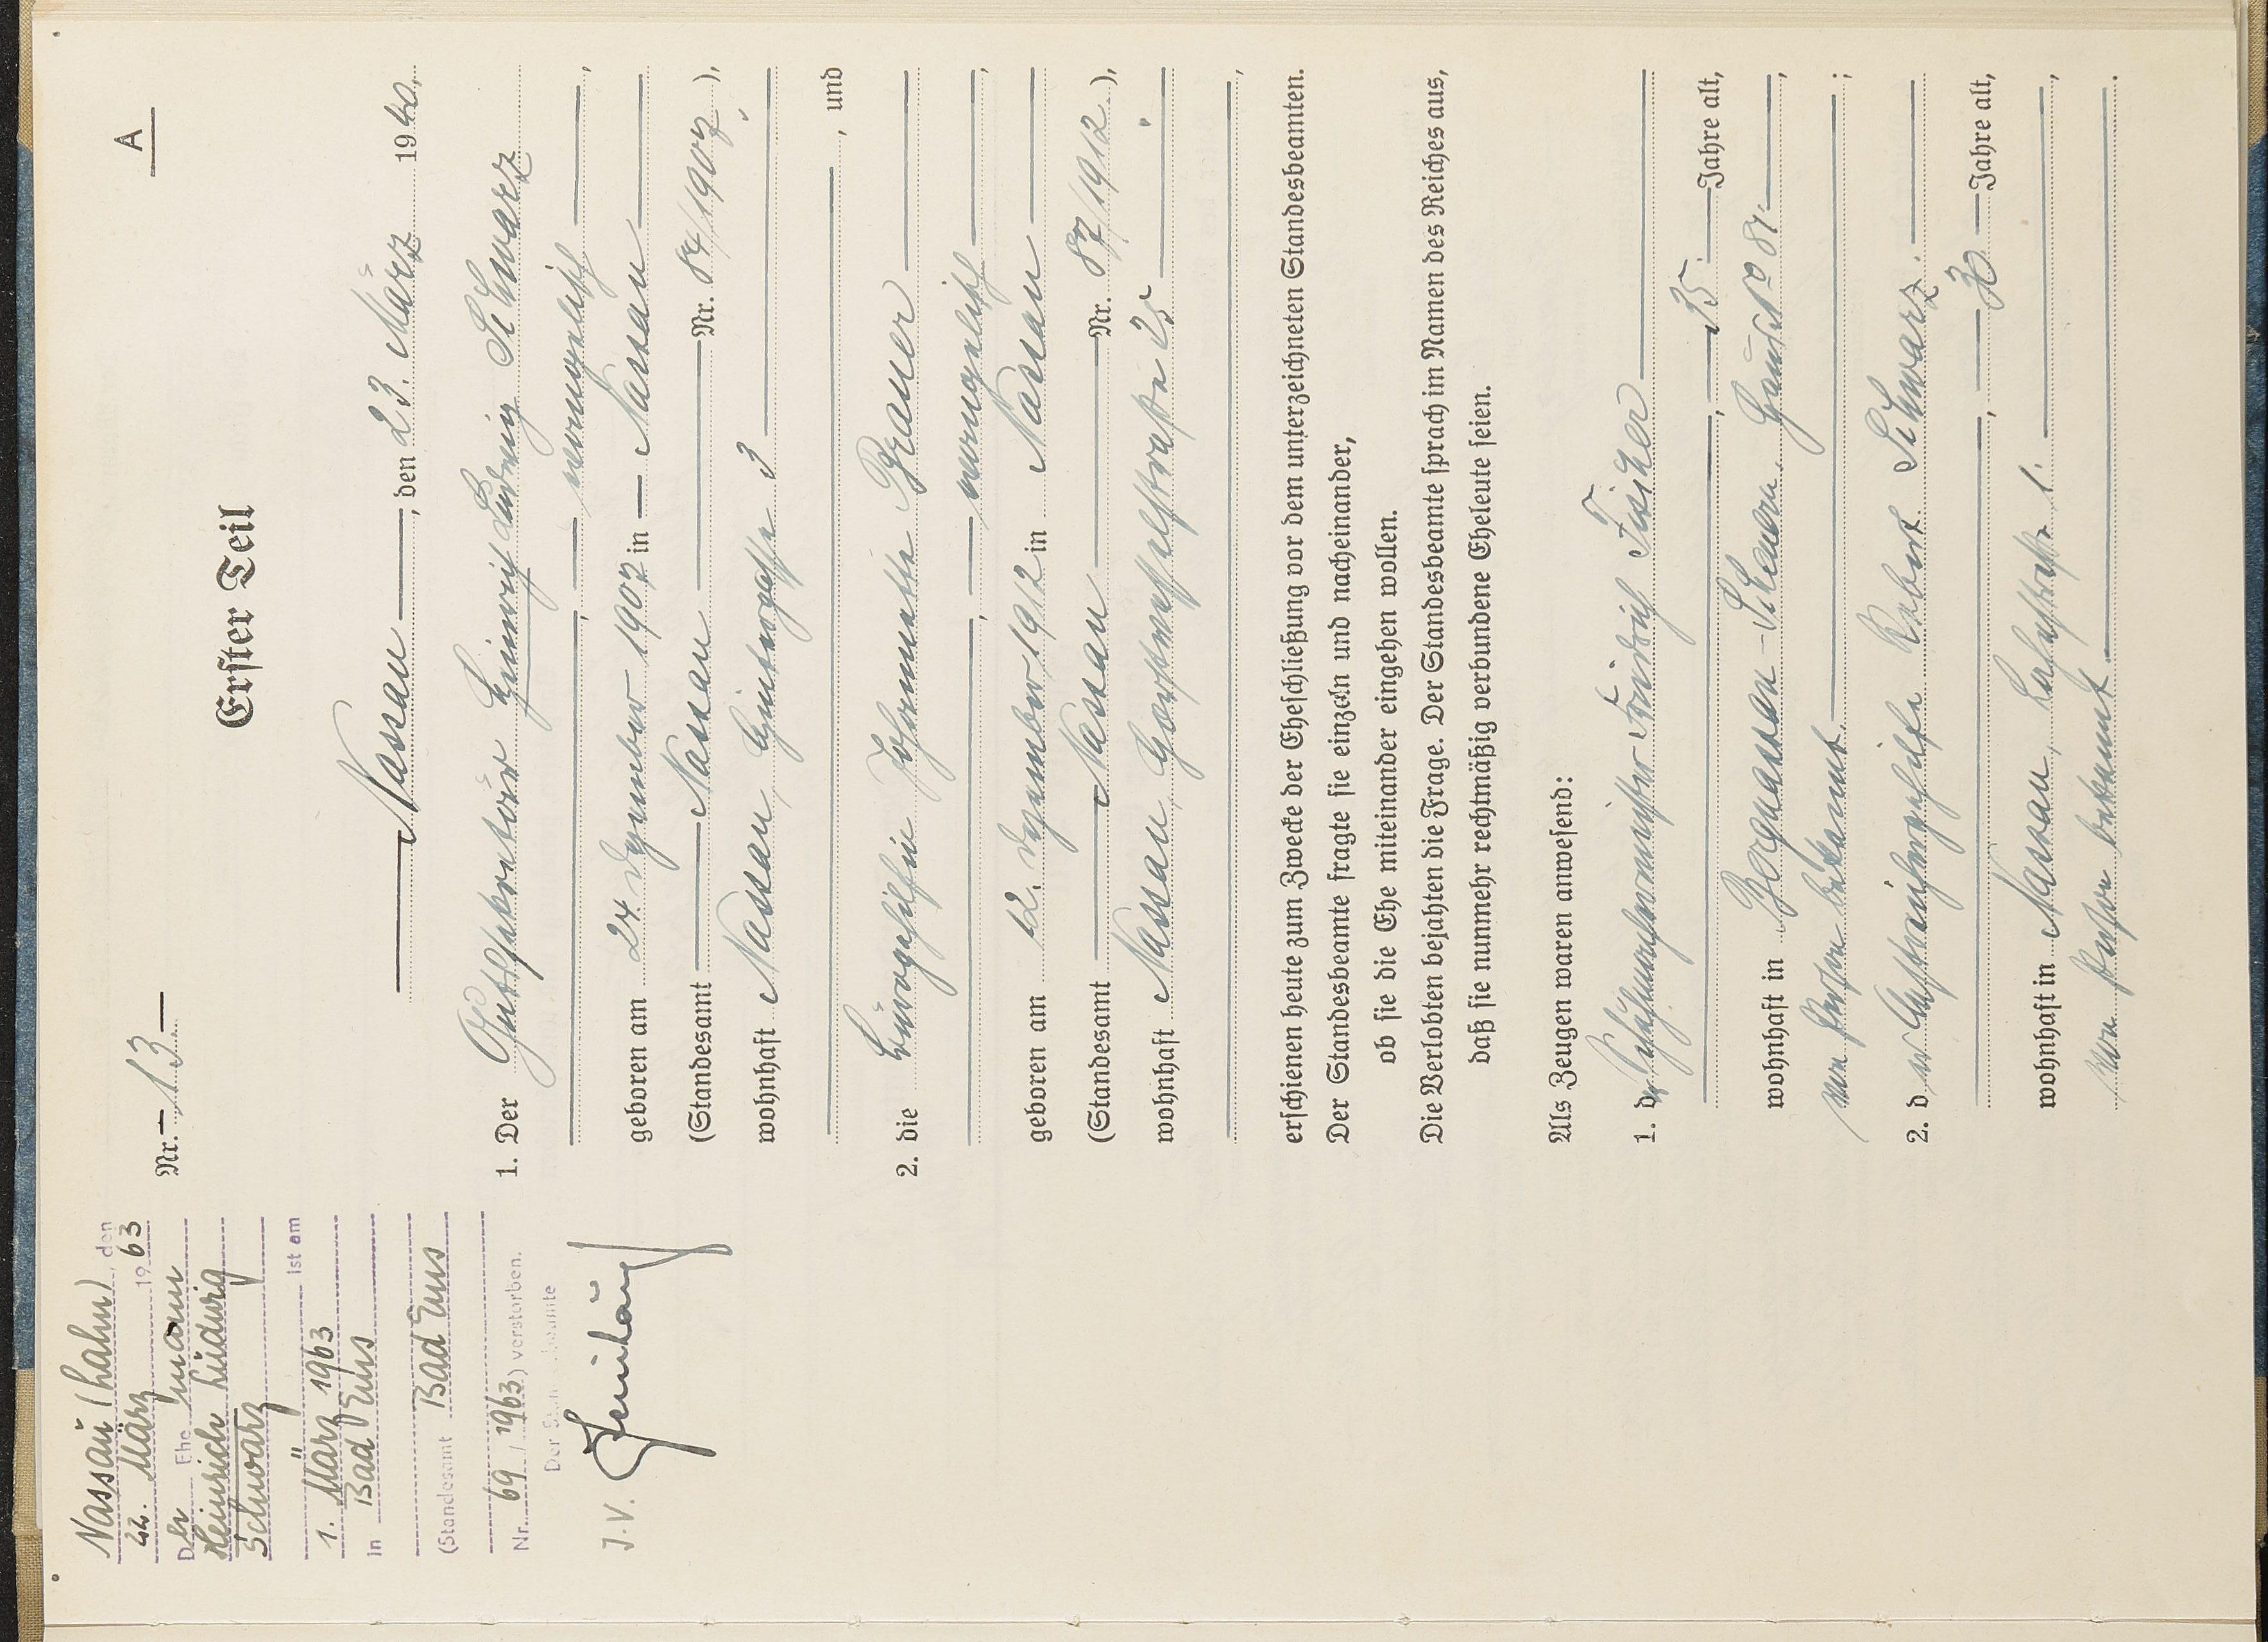 A
Nr. 13
Erster Teil
Nassau, den 23. März 1940.
1. Der Heinrich Ludwig Schwarz
, evangelisch,
geboren am 24. Dezember 1907 in Nassau
(Standesamt Nassau Nr. 84/1907),
wohnhaft Nassau, Hintergasse 3
, und
2. die Bürogehilfin Johannette Brauer
, evangelisch,
geboren am 12. Dezember 1912 in Nassau
(Standesamt Nassau Nr. 87/1912),
wohnhaft Nassau, 25.
,
erschienen heute zum Zwecke der Eheschließung vor dem unterzeichneten Standesbeamten.
Der Standesbeamte fragte sie einzeln und nacheinander,
ob sie die Ehe miteinander eingehen wollen.
Die Verlobten bejahten die Frage. Der Standesbeamte sprach im Namen des Reiches aus,
daß sie nunmehr rechtmäßig verbundene Eheleute seien.
Als Zeugen waren anwesend:
1. der Friedrich Fischer
, 35. Jahre alt,
wohnhaft in Bergnassau-Scheuern,
von Person bekannt.;
2. der Robert Schwarz.
, 30. Jahre alt,
wohnhaft in Nassau, 1.,
von Person bekannt.
Nassau (Lahn), den
22. März 1963
Der Ehemann
Heinrich Ludwig
Schwarz
ist am
1. März 1963
in Bad Ems
(Standesamt Bad Ems
Nr. 69/1963) verstorben.
Der Standesbeamte
J.V.